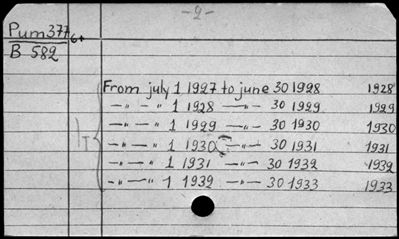 -2-
Pum 377 6+
B 582
From july 1 1927 to june 30 1928 1928
-"- -" 1 1928 -"- 30 1929 1929
-"- -" 1 1929 -"- 30 1930 1930
-"- -" 1 1930 -"- 30 1931 1931
-"- -" 1 1931 -"- 30 1932 1932
-"- -" 1 1932 -"- 30 1933 1933